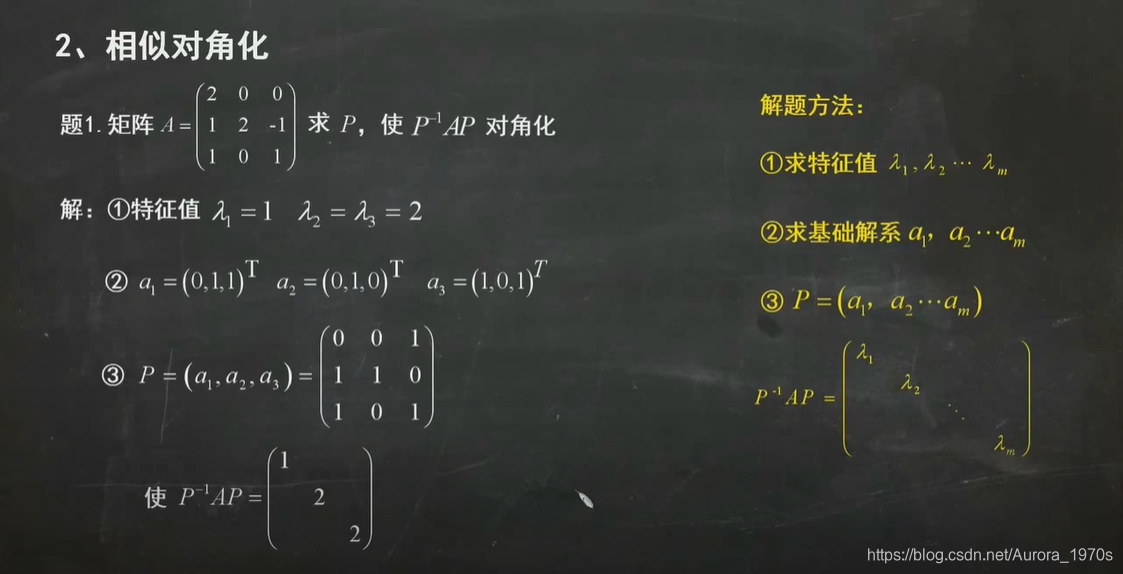 2、相似对角化
题1. 矩阵 A = ( 2 0 0 ; 1 2 -1 ; 1 0 1 ) 求 P，使 P⁻¹AP 对角化
解：①特征值 λ₁ = 1 λ₂ = λ₃ = 2
② a₁ = (0,1,1)ᵀ a₂ = (0,1,0)ᵀ a₃ = (1,0,1)ᵀ
③ P = (a₁, a₂, a₃) = ( 0 0 1 ; 1 1 0 ; 1 0 1 )
使 P⁻¹AP = ( 1 ; 2 ; 2 )
解题方法：
①求特征值 λ₁, λ₂ ⋯ λₘ
②求基础解系 a₁，a₂ ⋯aₘ
③ P = (a₁，a₂ ⋯aₘ)
P⁻¹AP = ( λ₁ ; λ₂ ; ⋱ ; λₘ )
https://blog.csdn.net/Aurora_1970s